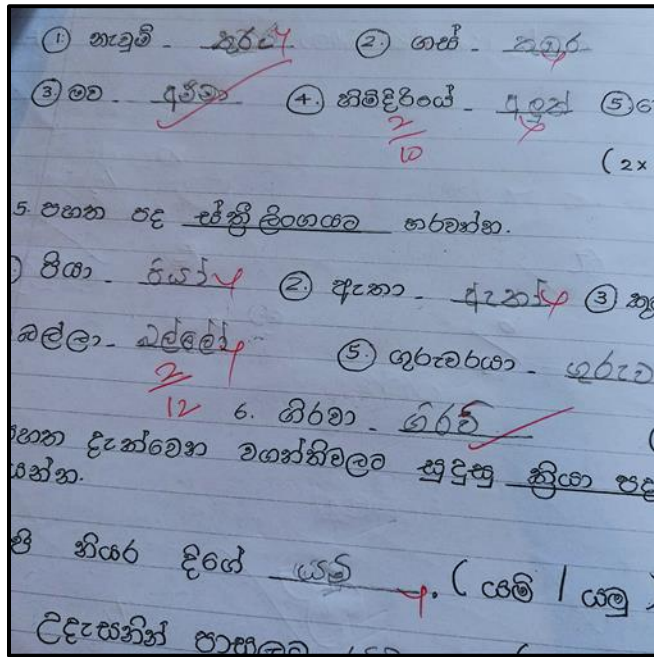 ① නැටුම් - කුරුටු ② ගස් - කඹුර
③ මව - අම්මා ④ හිමිදිරියේ - අලුත් ⑤
2/10
(2x
5. පහත පද ස්ත්‍රී ලිංගයට හරවන්න.
පියා - පියෝ ② ඇතා - ඇතෝ ③
බල්ලා - බල්ලෝ ⑤ ගුරුවරයා - ගුරුව
2/12
6. ගිරවා - ගිරවි
පහත දැක්වෙන වගන්තිවලට සුදුසු ක්‍රියා පද
යන්න.
පි නියර දිගේ යමු. ( යමි / යමු )
උදැසනින් පාසලට